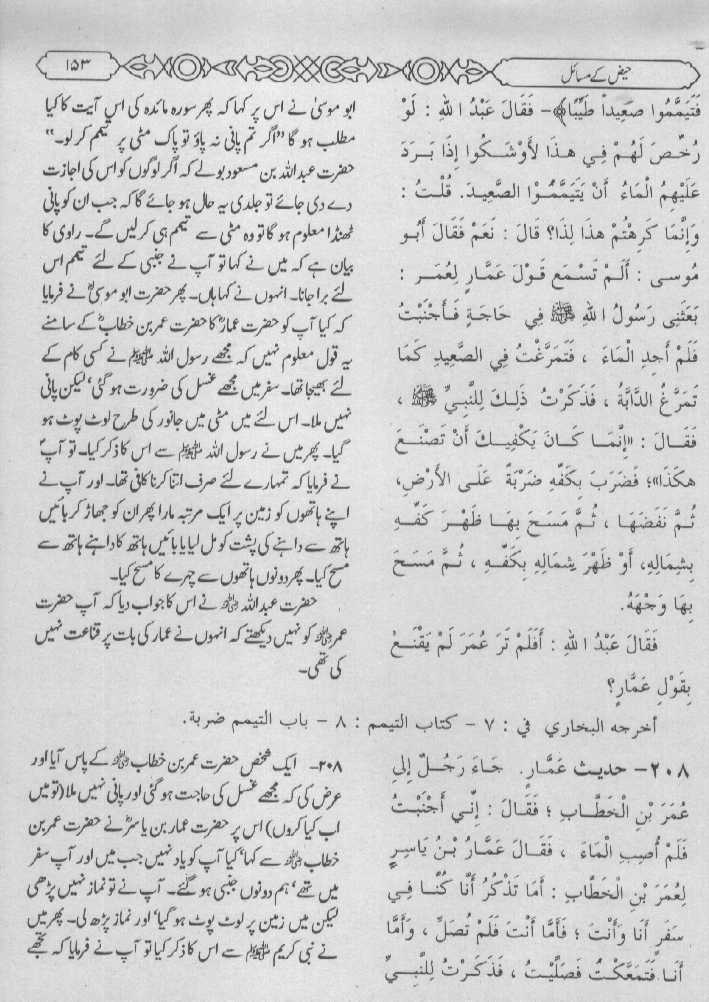 حیض کے مسائل
۱۵۳
فَتَيَمَّمُوا صَعِيداً طَيِّبًا﴾ - فَقَالَ عَبْدُ اللهِ : لَوْ
رُخِّصَ لَهُمْ فِي هذَا لَأَوْشَكُوا إِذَا بَرَدَ
عَلَيْهِمُ الْمَاءُ أَنْ يَتَيَمَّمُوْا الصَّعِيدَ. قُلْتُ :
وَإِنَّمَا كَرِهْتُمْ هذَا لِذَا؟ قَالَ : نَعَمْ فَقَالَ أَبُو
مُوسى : أَلَمْ تَسْمَعْ قَوْلَ عَمَّارٍ لِعُمَرَ :
بَعَثَنِى رَسُولُ اللهِ ﷺ فِي حَاجَةٍ فَأَجْنَبْتُ
فَلَمْ أَجِدِ الْمَاءَ ، فَتَمَرَّغْتُ فِي الصَّعِيدِ كَمَا
تَمَرَّغُ الدَّابَّةُ ، فَذَكَرْتُ ذلِكَ لِلنَّبِيِّ ﷺ ،
فَقَالَ : «إِنَّمَا كَانَ يَكْفِيكَ أَنْ تَصْنَعَ
هكَذَا»؛ فَضَرَبَ بِكَفِّهِ ضَرْبَةً عَلَى الأَرْضِ،
ثُمَّ نَفَضَهَا ، ثُمَّ مَسَحَ بِهَا ظَهْرَ كَفِّهِ
بِشِمَالِهِ، أَوْ ظَهْرَ شِمَالِهِ بِكَفِّهِ ، ثُمَّ مَسَحَ
بِهَا وَجْهَهُ.
فَقَالَ عَبْدُ اللهِ : أَفَلَمْ تَرَ عُمَرَ لَمْ يَقْنَعْ
بِقَوْلِ عَمَّارٍ؟
ابو موسیٰ نے اس پر کہا کہ پھر سورہ مائدہ کی اس آیت کا کیا
مطلب ہو گا ’’اگر تم پانی نہ پاؤ تو پاک مٹی پر تیمم کر لو۔‘‘
حضرت عبداللہ بن مسعود بولے کہ اگر لوگوں کو اس کی اجازت
دے دی جائے تو جلدی یہ حال ہو جائے گا کہ جب ان کو پانی
ٹھنڈا معلوم ہو گا تو وہ مٹی سے تیمم ہی کر لیں گے۔ راوی کا
بیان ہے کہ میں نے کہا تو آپ نے جنبی کے لئے تیمم اس
لئے برا جانا۔ انہوں نے کہا ہاں۔ پھر حضرت ابو موسیٰؓ نے فرمایا
کہ کیا آپ کو حضرت عمارؓ کا حضرت عمر بن خطابؓ کے سامنے
یہ قول معلوم نہیں کہ مجھے رسول اللہ ﷺ نے کسی کام کے
لئے بھیجا تھا۔ سفر میں مجھے غسل کی ضرورت ہو گئی‘ لیکن پانی
نہیں ملا۔ اس لئے میں مٹی میں جانور کی طرح لوٹ پوٹ ہو
گیا۔ پھر میں نے رسول اللہ ﷺ سے اس کا ذکر کیا۔ تو آپؐ
نے فرمایا کہ تمہارے لئے صرف اتنا کرنا کافی تھا۔ اور آپ نے
اپنے ہاتھوں کو زمین پر ایک مرتبہ مارا پھر ان کو جھاڑ کر بائیں
ہاتھ سے داہنے کی پشت کو مل لیا یا بائیں ہاتھ کا داہنے ہاتھ سے
مسح کیا۔ پھر دونوں ہاتھوں سے چہرے کا مسح کیا۔
حضرت عبداللہ ؓ نے اس کا جواب دیا کہ آپ حضرت
عمر ؓ کو نہیں دیکھتے کہ انہوں نے عمار کی بات پر قناعت نہیں
کی تھی۔
أخرجه البخاري في : ٧ - كتاب التيمم : ٨ - باب التيمم ضربة.
٢٠٨ - حديث عَمَّارٍ. جَاءَ رَجُلٌ إِلى
عُمَرَ بْنِ الْخَطَّابِ ؛ فَقَالَ : إِنِّي أَجْنَبْتُ
فَلَمْ أُصِبِ الْمَاءَ ، فَقَالَ عَمَّارُ بْنُ يَاسِرٍ
لِعُمَرَ بْنِ الْخَطَّابِ : أَمَا تَذْكُرُ أَنَّا كُنَّا فِي
سَفَرٍ أَنَا وَأَنْتَ ؛ فَأَمَّا أَنْتَ فَلَمْ تُصَلِّ ، وَأَمَّا
أَنَا فَتَمَعَّكْتُ فَصَلَّيْتُ ، فَذَكَرْتُ لِلنَّبِيِّ
۲۰۸- ایک شخص حضرت عمر بن خطاب ؓ کے پاس آیا اور
عرض کی کہ مجھے غسل کی حاجت ہو گئی اور پانی نہیں ملا (تو میں
اب کیا کروں) اس پر حضرت عمار بن یاسرؓ نے حضرت عمر بن
خطاب ؓ سے کہا‘ کیا آپ کو یاد نہیں جب میں اور آپ سفر
میں تھے‘ ہم دونوں جنبی ہو گئے۔ آپ نے تو نماز نہیں پڑھی
لیکن میں زمین پر لوٹ پوٹ ہو گیا‘ اور نماز پڑھ لی۔ پھر میں
نے نبی کریم ﷺ سے اس کا ذکر کیا تو آپ نے فرمایا کہ تجھے